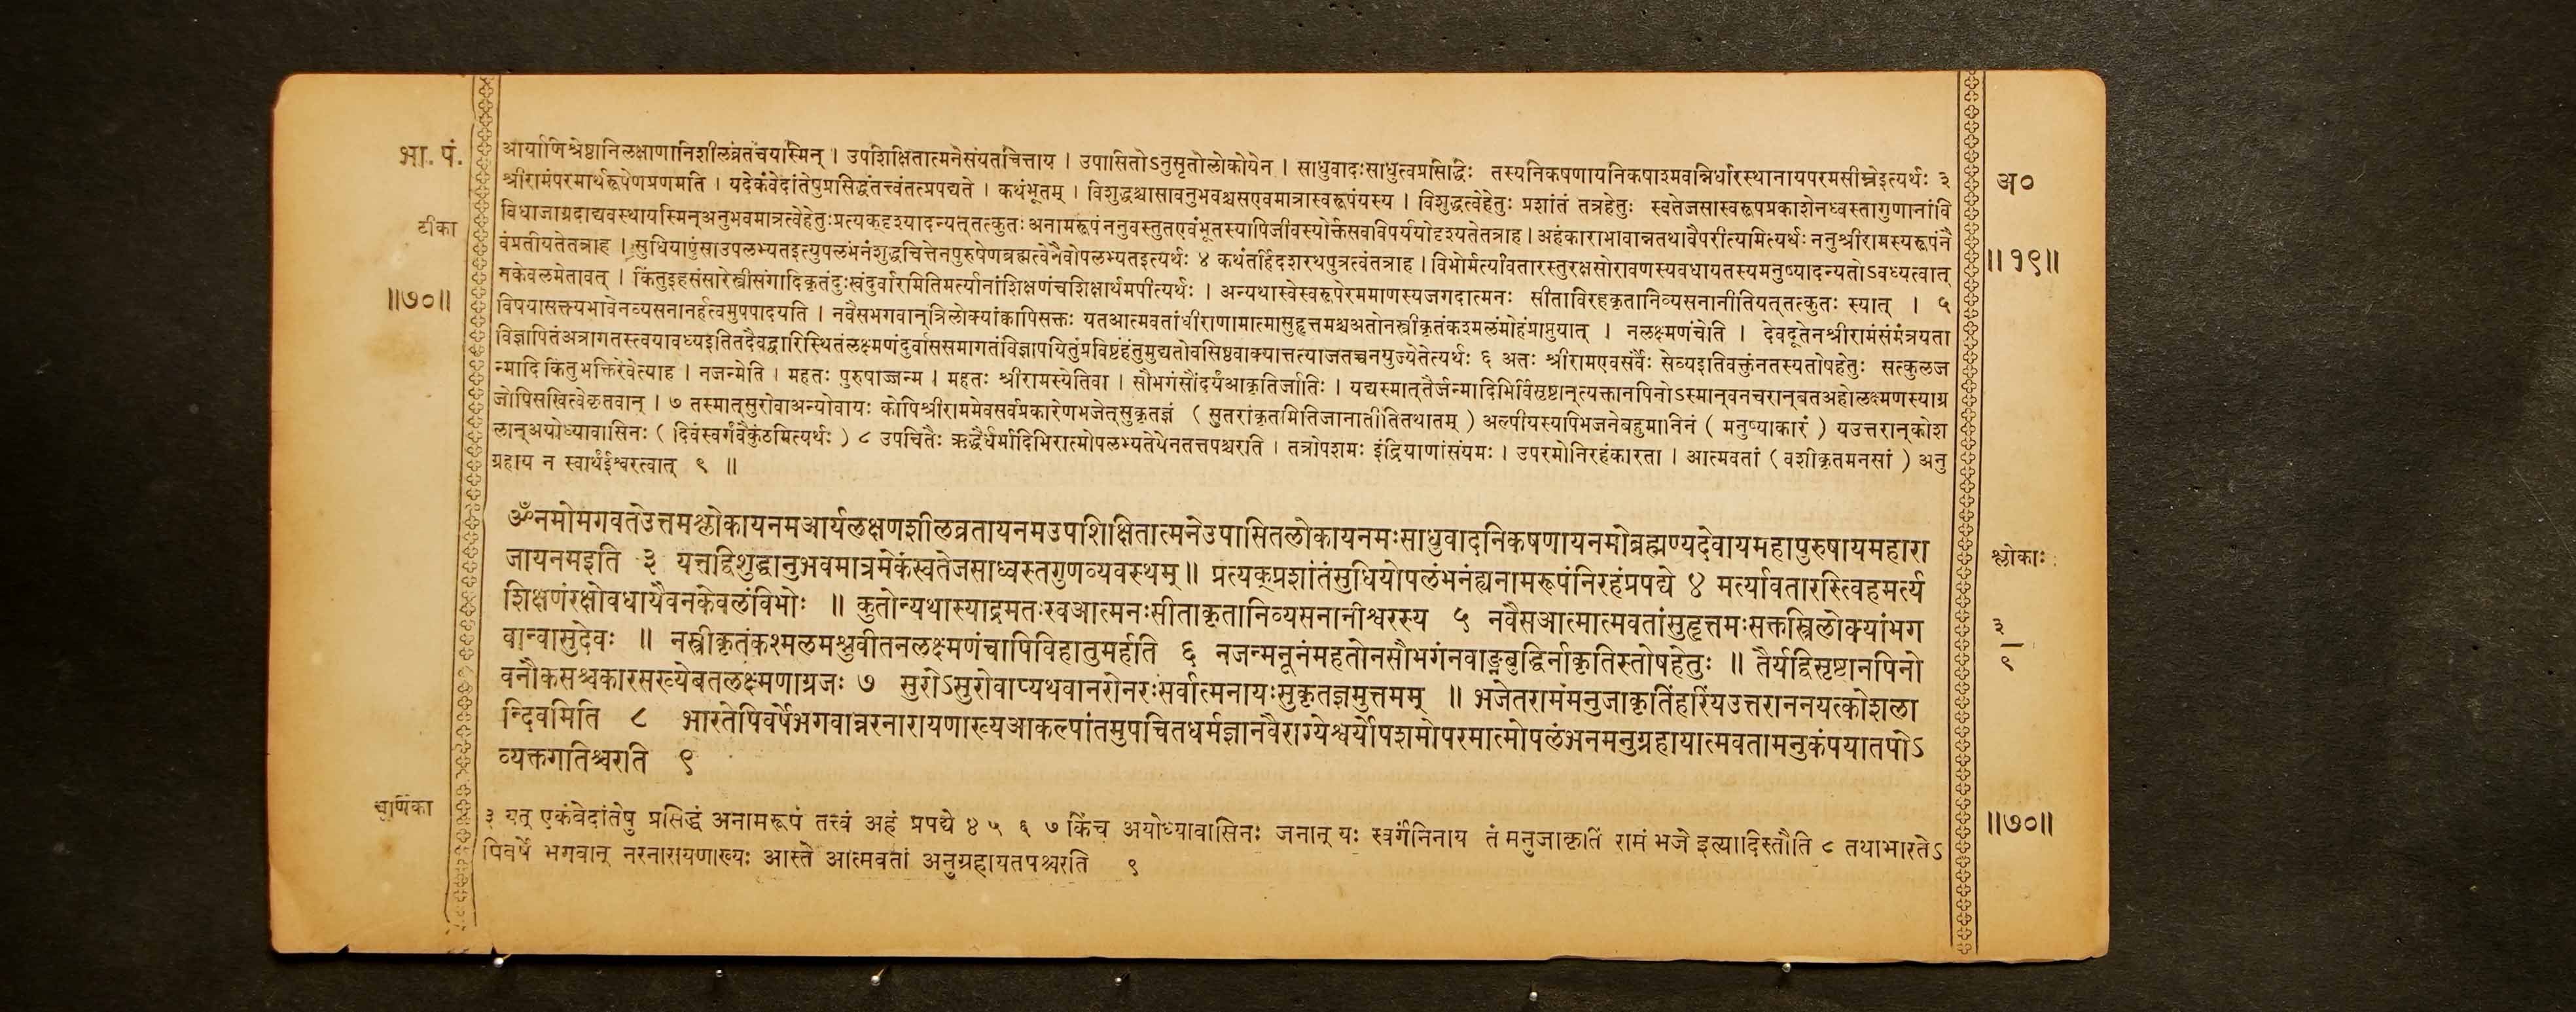 भा. पं.
आर्याणिश्रेष्ठानिलक्षाणानिशीलंव्रतंचयास्मिन् । उपशिक्षितात्मनेसंयतचित्ताय । उपासितोऽनुसृतोलोकोयेन । साधुवादःसाधुत्वप्रसिद्धिः तस्यनिकषणायनिकषाश्मवन्निर्धारस्थानायपरमसीम्नेइत्यर्थः ३
अ०
श्रीरामंपरमार्थरूपेणप्रणमति । यदेकंवेदांतेषुप्रसिद्धंतत्त्वंतत्प्रपद्यते । कथंभूतम् । विशुद्धश्चासावनुभवश्चसएवमात्रास्वरूपंयस्य । विशुद्धत्वेहेतुः प्रशांतं तत्रहेतुः स्वतेजसास्वरूपप्रकाशेनध्वस्तागुणानांवि
टीका
विधाजाग्रदाद्यवस्थायस्मिन्अनुभवमात्रत्वेहेतुःप्रत्यक्दृश्यादन्यत्तत्कुतः अनामरूपं ननुवस्तुतएवंभूतस्यापिजीवस्योर्क्तसवविपर्ययोदृश्यतेतत्राह । अहंकाराभावान्नतथावैपरीत्यमित्यर्थः ननुश्रीरामस्यरूपंनै
वंप्रतीयतेतत्राह । सुधियापुंसाउपलभ्यतइत्युपलंभनंशुद्धचित्तेनपुरुषेणब्रह्मत्वेनैवोपलभ्यतइत्यर्थः ४ कथंतर्हिदशरथपुत्रत्वंतत्राह । विभोर्मर्त्यावतारस्तुरक्षसोरावणस्यवधायतस्यमनुष्यादन्यतोऽवध्यत्वात्
॥१९॥
नकेवलमेतावत् । किंतुइहसंसारेस्त्रीसंगादिकृतंदुःखंदुर्वारमितिमर्त्यानांशिक्षणंचशिक्षार्थमपीत्यर्थः । अन्यथास्वेस्वरूपेरममाणस्यजगदात्मनः सीताविरहकृतानिव्यसनानीतियत्तत्कुतः स्यात् । ५
॥७०॥
विषयासक्त्यभावेनव्यसनानर्हत्वमुपपादयति । नवैसभगवान्त्रिलोक्यांक्वापिसक्तः यतआत्मवतांधीराणामात्मासुहृत्तमश्चअतोनस्त्रीकृतंकश्मलंमोहंप्राप्नुयात् । नलक्ष्मणंचेति । देवदूतेनश्रीरामंसंमंत्रयता
विज्ञापितंअत्रागतस्त्वयावध्यइतितदैवद्वारिस्थितंलक्ष्मणंदुर्वाससमागतंविज्ञापयितुंप्रविष्टंहंतुमुद्यतोवसिष्ठवाक्यात्तत्याजतच्चनयुज्येतेत्यर्थः ६ अतः श्रीरामएवसर्वैः सेव्यइतिवक्तुंनतस्यतोषहेतुः सत्कुलज
न्मादि किंतुभक्तिरेवेत्याह । नजन्मेति । महतः पुरुषाज्जन्म । महतः श्रीरामस्येतिवा । सौभगंसौंदर्यंआकृतिर्जातिः । यद्यस्मात्तैर्जन्मादिभिर्विसृष्टान्त्यक्तानपिनोऽस्मान्वनचरान्बतअहोलक्ष्मणस्याग्र
जोपिसखित्वेकृतवान् । ७ तस्मात्सुरोवाअन्योवायः कोपिश्रीराममेवसर्वप्रकारेणभजेत्सुकृतज्ञं ( सुतरांकृतमितिजानातीतितथातम् ) अल्पीयस्यपिभजनेबहुमानिनं ( मनुष्याकारं ) यउत्तरान्कोश
लान्अयोध्यावासिनः ( दिवंस्वर्गंवैकुंठमित्यर्थः ) ८ उपचितैः ऋद्धैर्धर्मादिभिरात्मोपलभ्यतेयेनतत्तपश्चरति । तत्रोपशमः इंद्रियाणांसंयमः । उपरमोनिरहंकारता । आत्मवतां ( वशीकृतमनसां ) अनु
ग्रहाय न स्वार्थंईश्वरत्वात् ९ ॥
ॐनमोभगवतेउत्तमश्लोकायनमआर्यलक्षणशीलव्रतायनमउपशिक्षितात्मनेउपासितलोकायनमःसाधुवादनिकषणायनमोब्रह्मण्यदेवायमहापुरुषायमहारा
जायनमइति ३ यत्तद्विशुद्धानुभवमात्रमेकंस्वतेजसाध्वस्तगुणव्यवस्थम् ॥ प्रत्यक्प्रशांतंसुधियोपलंभनंह्यनामरूपंनिरहंप्रपद्ये ४ मर्त्यावतारस्त्विहमर्त्य
श्लोकाः
शिक्षणंरक्षोवधायैवनकेवलंविभोः ॥ कुतोन्यथास्याद्रमतःस्वआत्मनःसीताकृतानिव्यसनानीश्वरस्य ५ नवैसआत्मात्मवतांसुहृत्तमःसक्तस्त्रिलोक्यांभग
वान्वासुदेवः ॥ नस्त्रीकृतंकश्मलमश्नुवीतनलक्ष्मणंचापिविहातुमर्हति ६ नजन्मनूनंमहतोनसौभगंनवाङ्नबुद्धिर्नाकृतिस्तोषहेतुः ॥ तैर्यद्विसृष्टानपिनो
३
९
वनौकसश्चकारसख्येबतलक्ष्मणाग्रजः ७ सुरोऽसुरोवाप्यथवानरोनरःसर्वात्मनायःसुकृतज्ञमुत्तमम् ॥ भजेतरामंमनुजाकृतिंहरिंयउत्तराननयत्कोशला
न्दिवमिति ८ भारतेपिवर्षेभगवान्नरनारायणाख्यआकल्पांतमुपचितधर्मज्ञानवैराग्येश्वर्योपशमोपरमात्मोपलंभनमनुग्रहायात्मवतामनुकंपयातपोऽ
व्यक्तगतिश्चरति ९
चूर्णिका
३ यत् एकंवेदांतेषु प्रसिद्धं अनामरूपं तत्त्वं अहं प्रपद्ये ४ ५ ६ ७ किंच अयोध्यावासिनः जनान् यः स्वर्गंनिनाय तं मनुजाकृतिं रामं भजे इत्यादिस्तौति ८ तथाभारतेऽ
॥७०॥
पिवर्षे भगवान् नरनारायणाख्यः आस्ते आत्मवतां अनुग्रहायतपश्चरति ९